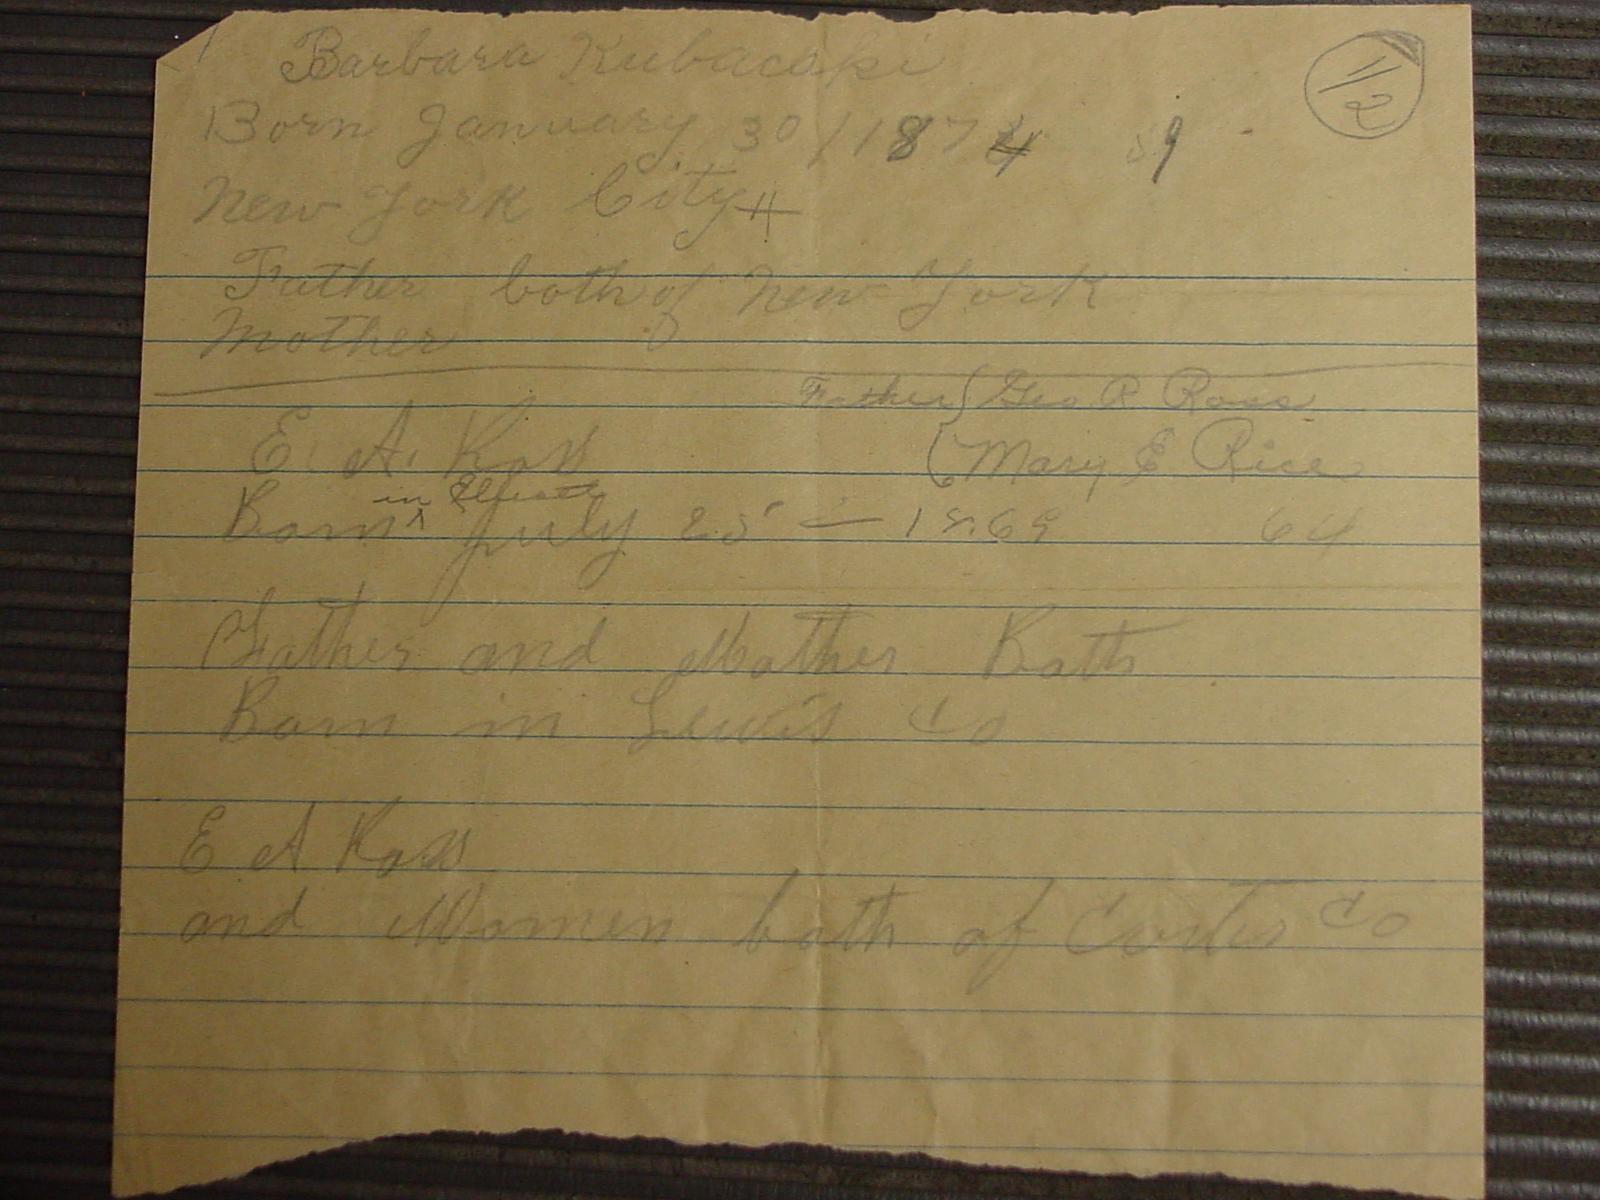 Barbara Kubacski
1/2
Born January 30/1874 59
New York City
Father both of New York
Mother
Father Geo R Ross
E. A. Ross
Mary E Rice
in
Born July 25 - 1869 64
Father and Mother Both
Born in Lewis Co
E A Ross
and Women both of Co